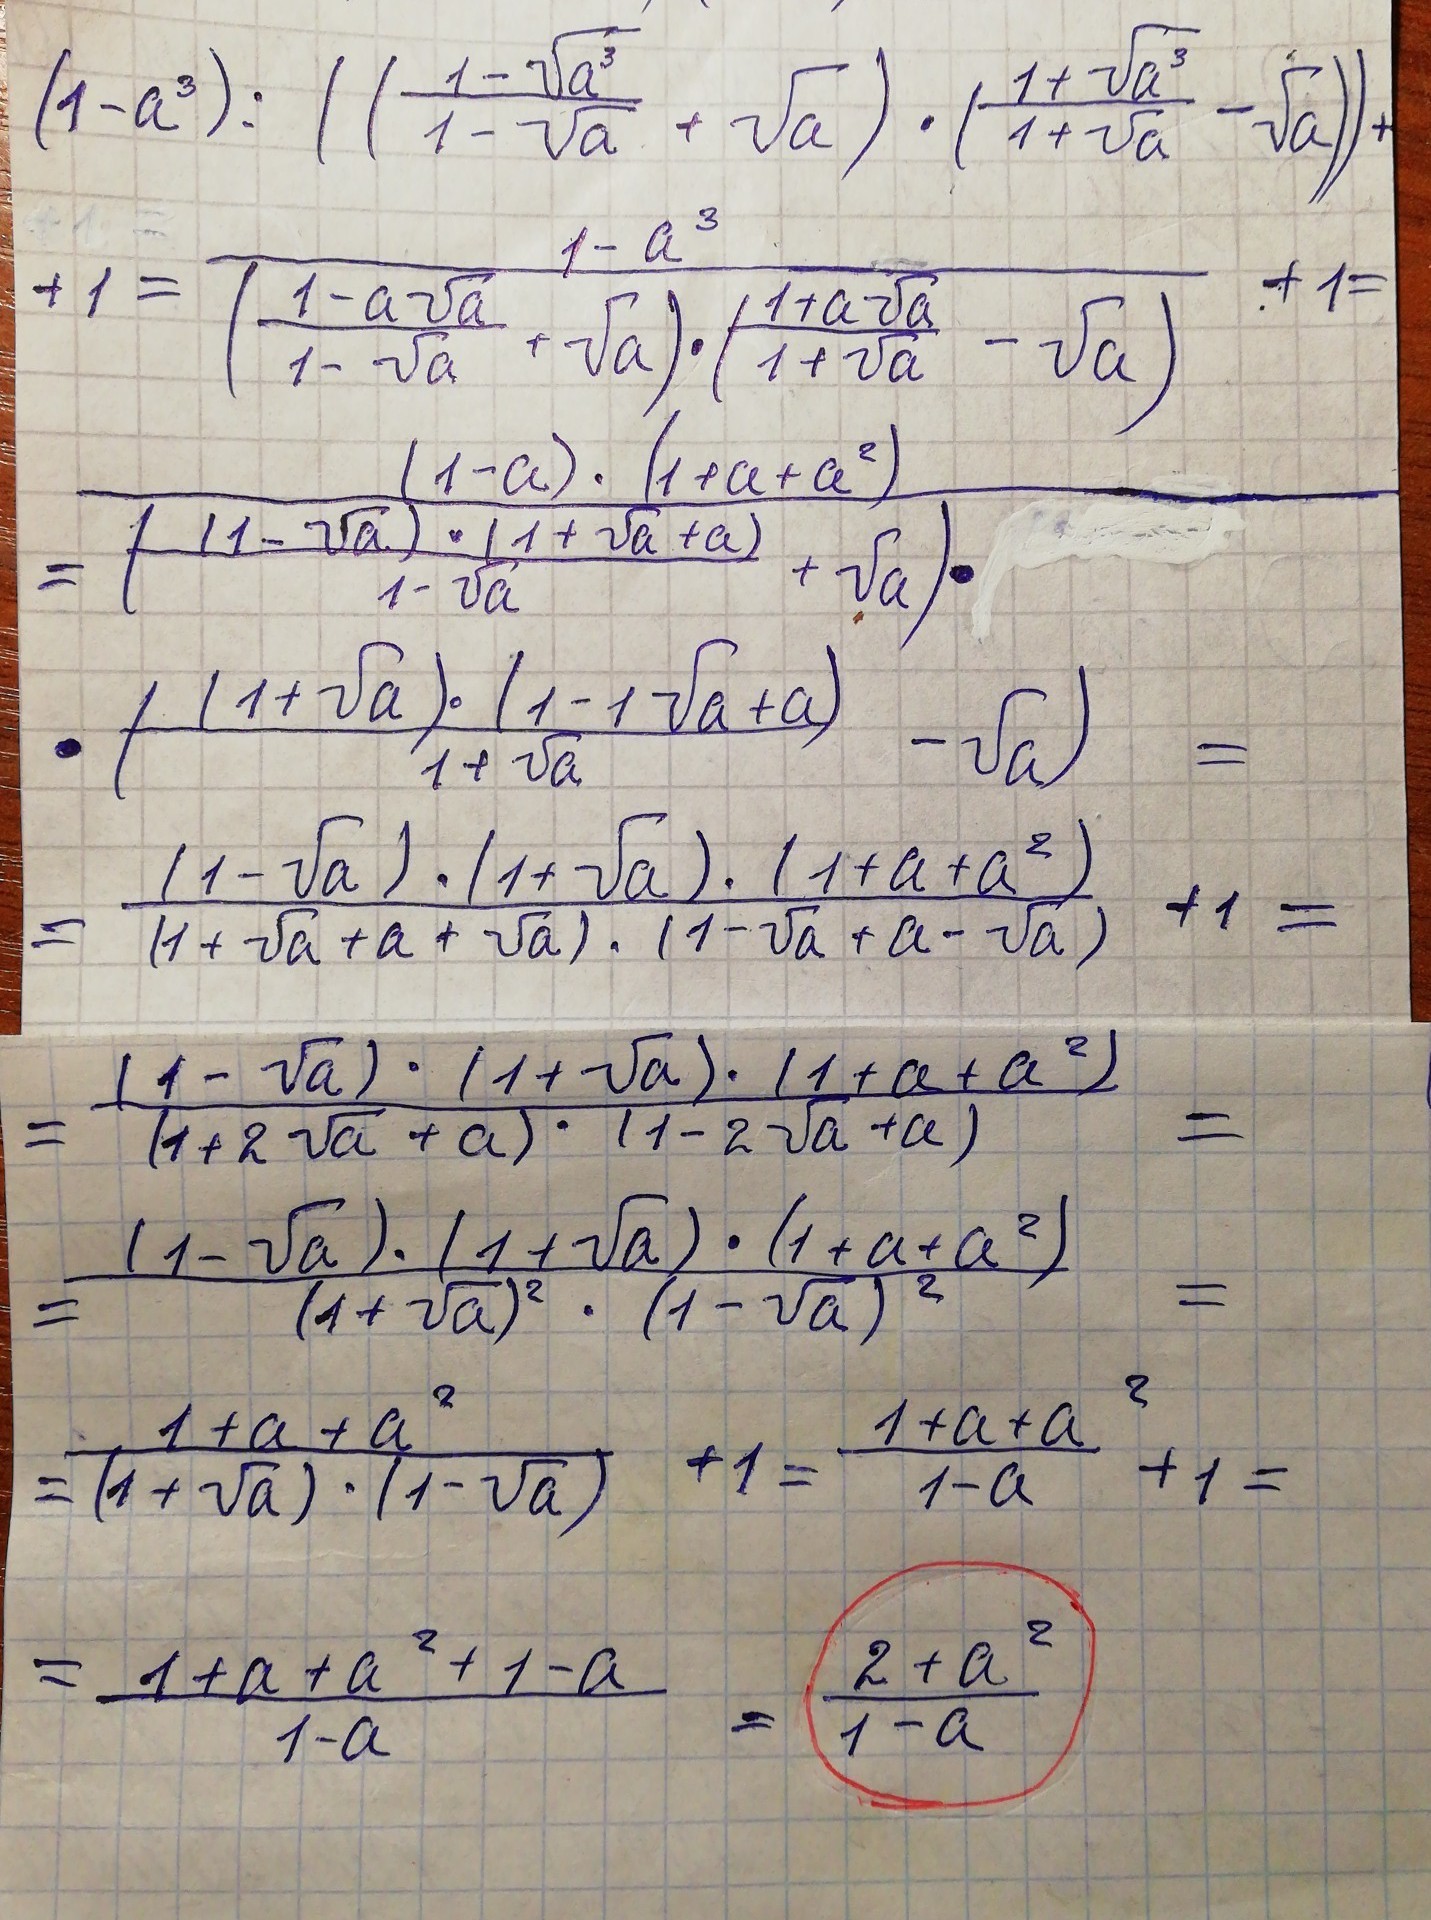 (1-a³): ((1-√a³/1-√a + √a) · (1+√a³/1+√a - √a))+
+1 = 1-a³/(1-a√a/1-√a + √a)·(1+a√a/1+√a - √a) +1=
= (1-a)·(1+a+a²)/((1-√a)·(1+√a+a)/1-√a + √a)·
·((1+√a)·(1-1√a+a)/1+√a - √a) =
= (1-√a)·(1+√a)·(1+a+a²)/(1+√a+a+√a)·(1-√a+a-√a) +1 =
= (1-√a)·(1+√a)·(1+a+a²)/(1+2√a+a)·(1-2√a+a) =
= (1-√a)·(1+√a)·(1+a+a²)/(1+√a)²·(1-√a)² =
= 1+a+a²/(1+√a)·(1-√a) +1 = 1+a+a²/1-a +1 =
= 1+a+a²+1-a/1-a = 2+a²/1-a